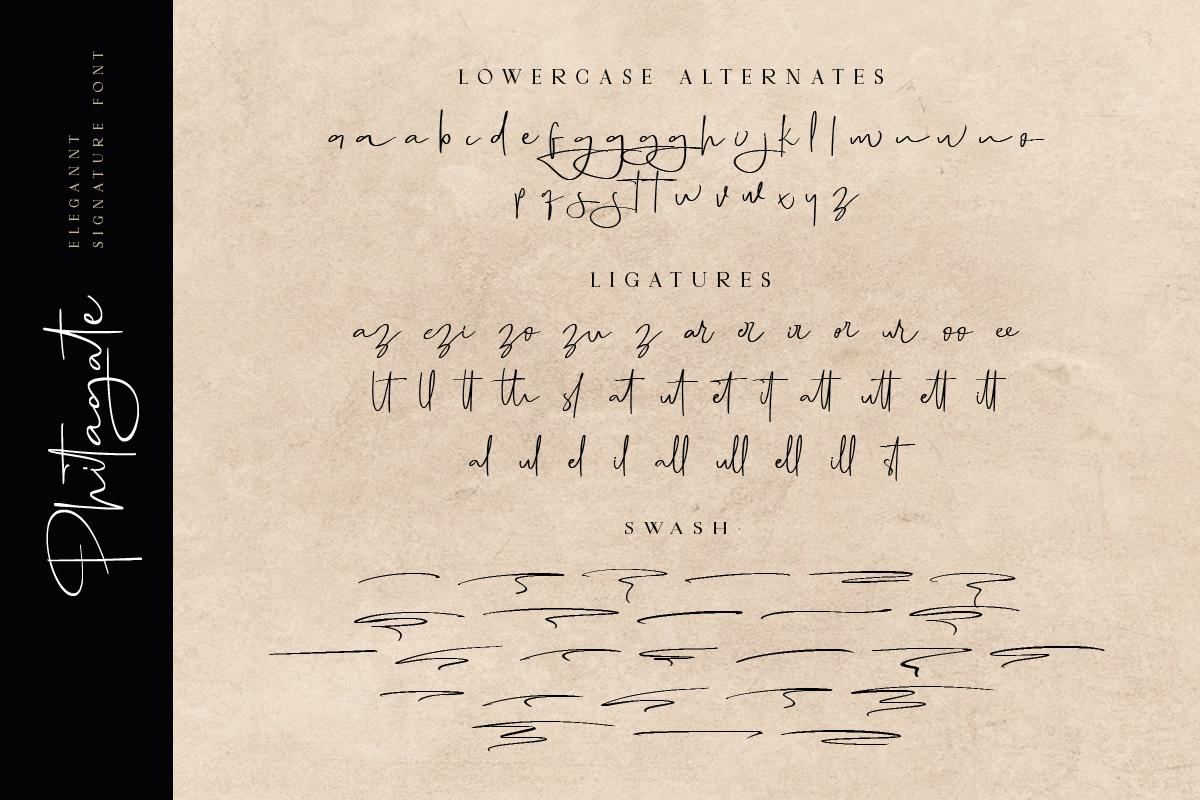 ELEGANNT
SIGNATURE FONT
Phittagatte
LOWERCASE ALTERNATES
a a a b c d e f g g g g h i j k l l m n n n o
p q s s t t u v w x y z
LIGATURES
az ezi zo zu z ar er ir or ur oo ee
lt ll tt tth sf at ut et it att utt ett itt
al ul el il all ull ell ill st
SWASH